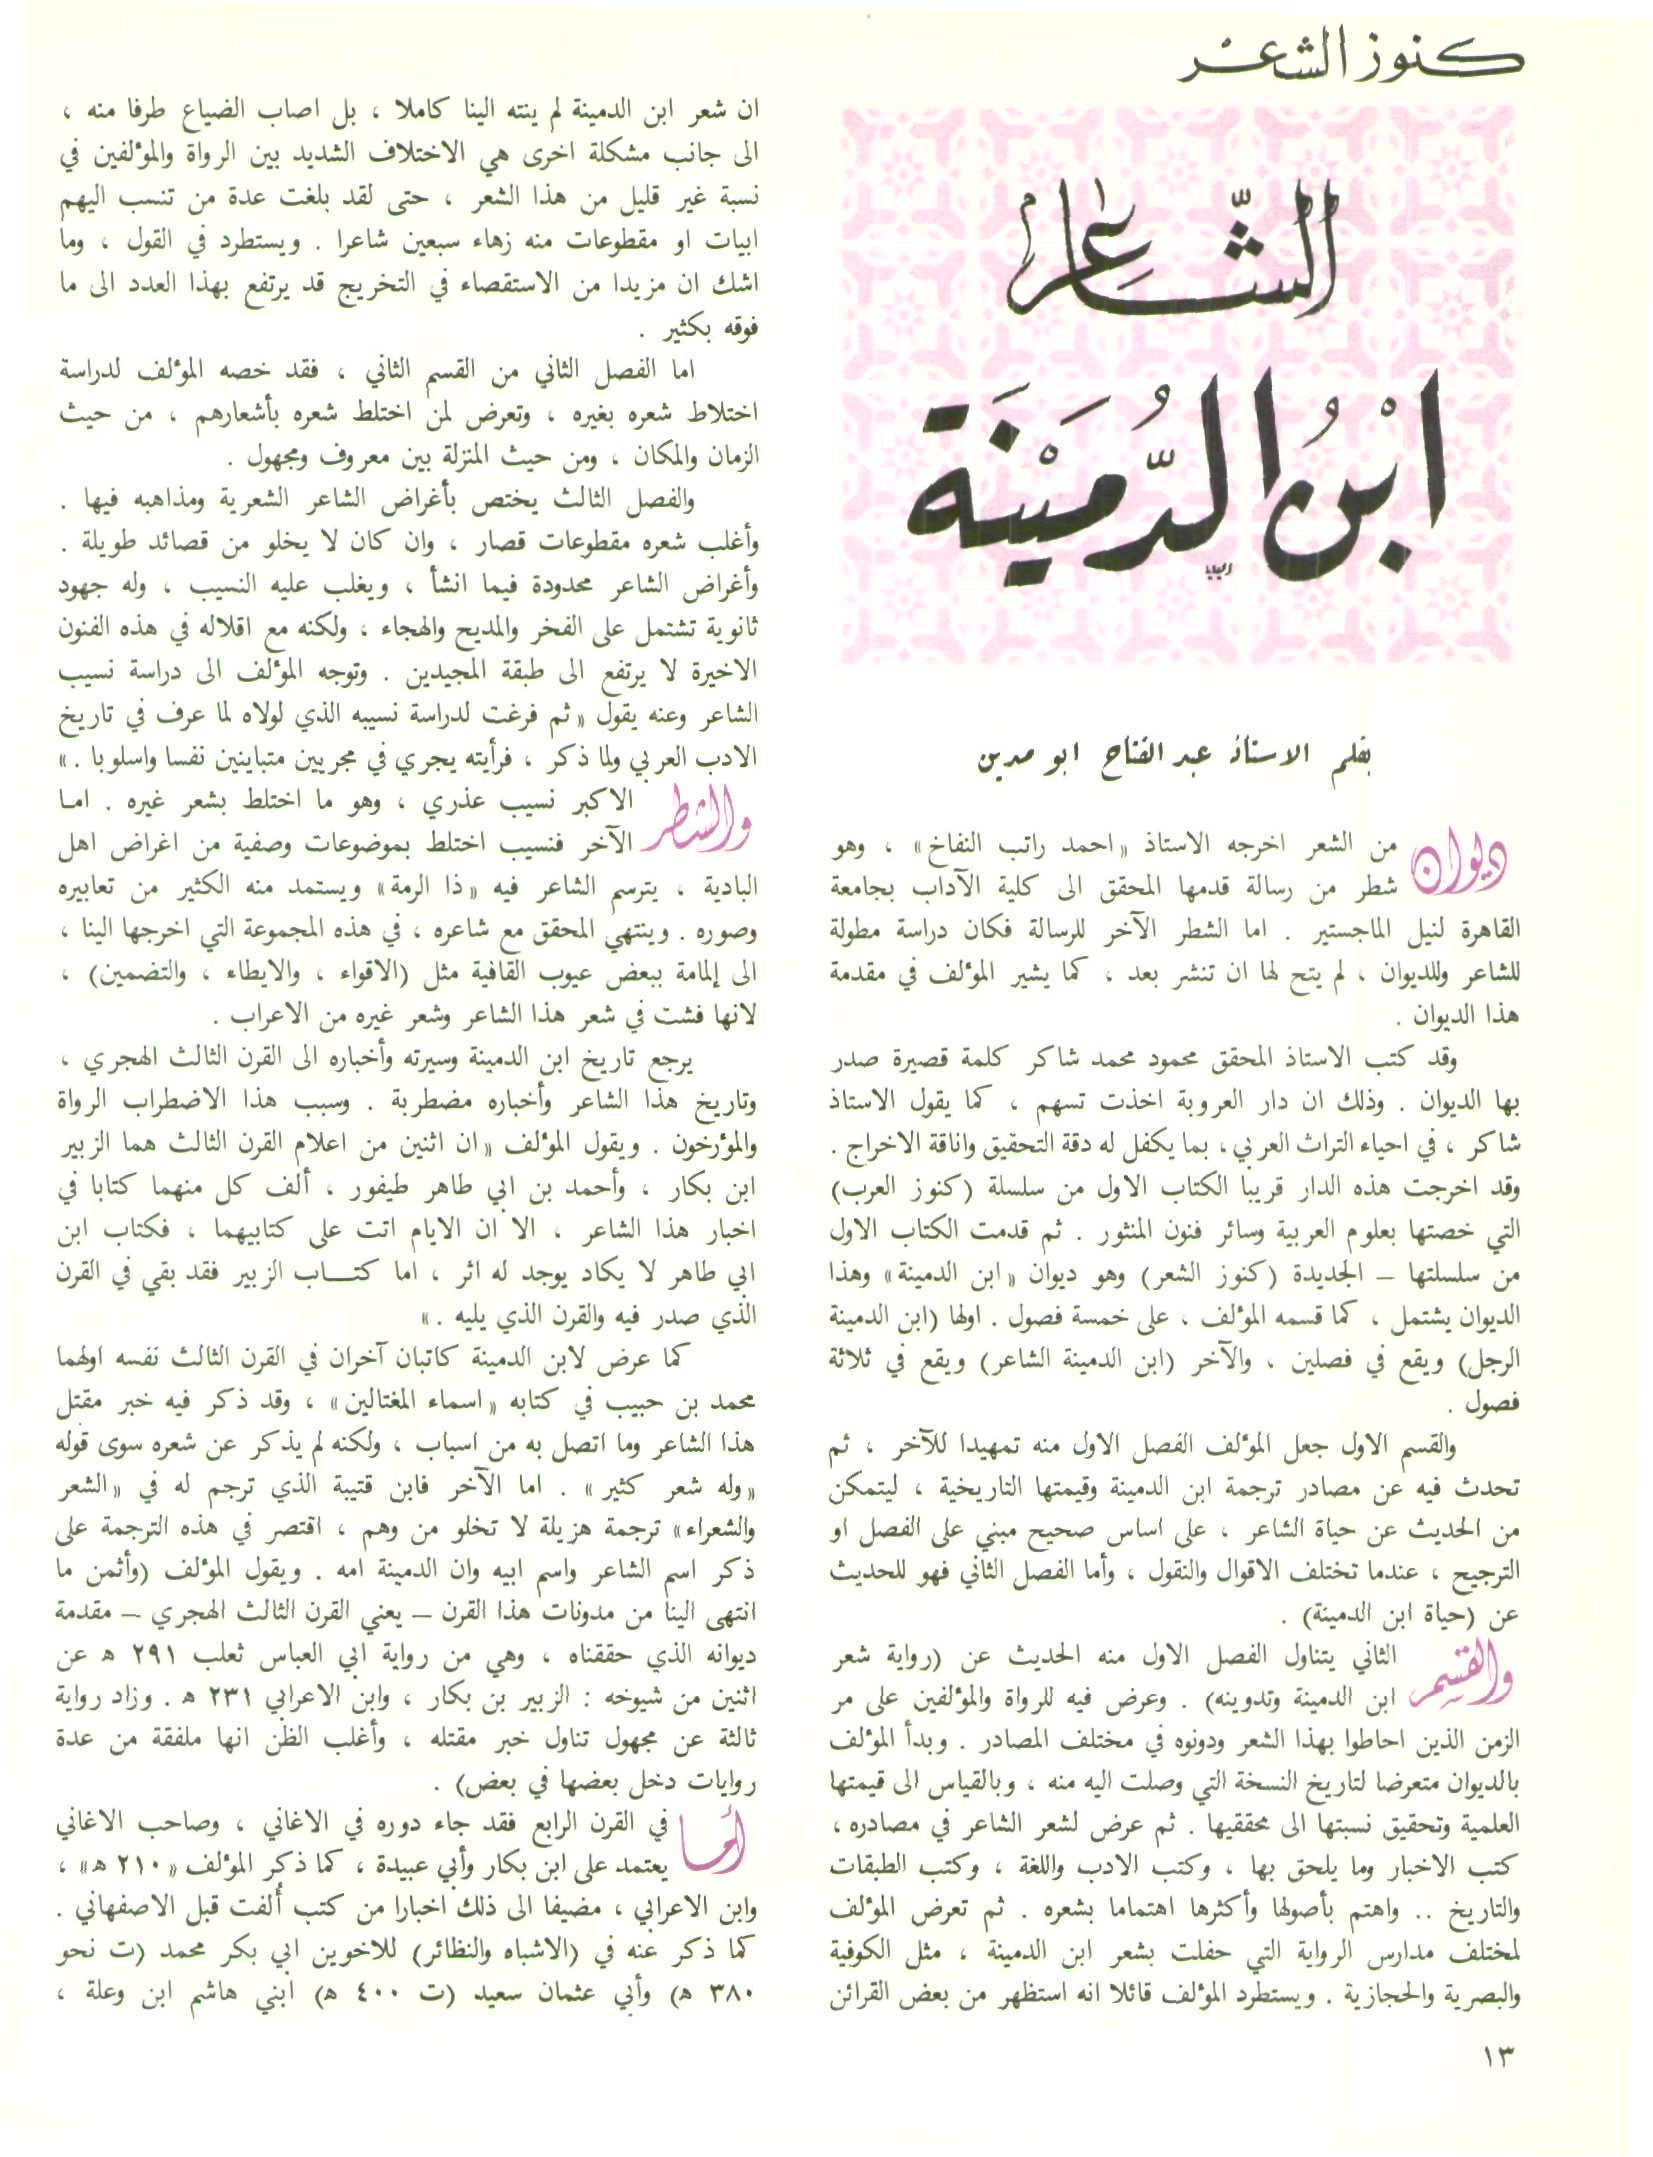 كنوز الشعر
الشاعر
ابن الدمينة
بقلم الاستاذ عبد الفتاح ابو مدين
ديوان من الشعر اخرجه الاستاذ «احمد راتب النفاخ» ، وهو
شطر من رسالة قدمها المحقق الى كلية الآداب بجامعة
القاهرة لنيل الماجستير . اما الشطر الآخر للرسالة فكان دراسة مطولة
للشاعر وللديوان ، لم يتح لها ان تنشر بعد ، كما يشير المؤلف في مقدمة
هذا الديوان .
وقد كتب الاستاذ المحقق محمود محمد شاكر كلمة قصيرة صدر
بها الديوان . وذلك ان دار العروبة اخذت تسهم ، كما يقول الاستاذ
شاكر ، في احياء التراث العربي، بما يكفل له دقة التحقيق واناقة الاخراج .
وقد اخرجت هذه الدار قريبا الكتاب الاول من سلسلة (كنوز العرب)
التي خصتها بعلوم العربية وسائر فنون المنثور . ثم قدمت الكتاب الاول
من سلسلتها – الجديدة (كنوز الشعر) وهو ديوان «ابن الدمينة» وهذا
الديوان يشتمل ، كما قسمه المؤلف ، على خمسة فصول . اولها (ابن الدمينة
الرجل) ويقع في فصلين ، والآخر (ابن الدمينة الشاعر) ويقع في ثلاثة
فصول .
والقسم الاول جعل المؤلف الفصل الاول منه تمهيدا للآخر ، ثم
تحدث فيه عن مصادر ترجمة ابن الدمينة وقيمتها التاريخية ، ليتمكن
من الحديث عن حياة الشاعر ، على اساس صحيح مبني على الفصل او
الترجيح ، عندما تختلف الاقوال والنقول ، وأما الفصل الثاني فهو للحديث
عن (حياة ابن الدمينة) .
والقسم الثاني يتناول الفصل الاول منه الحديث عن (رواية شعر
ابن الدمينة وتدوينه) . وعرض فيه للرواة والمؤلفين على مر
الزمن الذين احاطوا بهذا الشعر ودونوه في مختلف المصادر . وبدأ المؤلف
بالديوان متعرضا لتاريخ النسخة التي وصلت اليه منه ، وبالقياس الى قيمتها
العلمية وتحقيق نسبتها الى محققيها . ثم عرض لشعر الشاعر في مصادره ،
كتب الاخبار وما يلحق بها ، وكتب الادب واللغة ، وكتب الطبقات
والتاريخ .. واهتم بأصولها وأكثرها اهتماما بشعره . ثم تعرض المؤلف
لمختلف مدارس الرواية التي حفلت بشعر ابن الدمينة ، مثل الكوفية
والبصرية والحجازية . ويستطرد المؤلف قائلا انه استظهر من بعض القرائن
ان شعر ابن الدمينة لم ينته الينا كاملا ، بل اصاب الضياع طرفا منه ،
الى جانب مشكلة اخرى هي الاختلاف الشديد بين الرواة والمؤلفين في
نسبة غير قليل من هذا الشعر ، حتى لقد بلغت عدة من تنسب اليهم
ابيات او مقطوعات منه زهاء سبعين شاعرا . ويستطرد في القول ، وما
اشك ان مزيدا من الاستقصاء في التخريج قد يرتفع بهذا العدد الى ما
فوقه بكثير .
اما الفصل الثاني من القسم الثاني ، فقد خصه المؤلف لدراسة
اختلاط شعره بغيره ، وتعرض لمن اختلط شعره بأشعارهم ، من حيث
الزمان والمكان ، ومن حيث المنزلة بين معروف ومجهول .
والفصل الثالث يختص بأغراض الشاعر الشعرية ومذاهبه فيها .
وأغلب شعره مقطوعات قصار ، وان كان لا يخلو من قصائد طويلة .
وأغراض الشاعر محدودة فيما انشأ ، ويغلب عليه النسيب ، وله جهود
ثانوية تشتمل على الفخر والمديح والهجاء ، ولكنه مع اقلاله في هذه الفنون
الاخيرة لا يرتفع الى طبقة المجيدين . وتوجه المؤلف الى دراسة نسيب
الشاعر وعنه يقول «ثم فرغت لدراسة نسيبه الذي لولاه لما عرف في تاريخ
الادب العربي ولما ذكر ، فرأيته يجري في مجريين متباينين نفسا واسلوبا .»
والشطر الاكبر نسيب عذري ، وهو ما اختلط بشعر غيره . اما
الآخر فنسيب اختلط بموضوعات وصفية من اغراض اهل
البادية ، يترسم الشاعر فيه «ذا الرمة» ويستمد منه الكثير من تعابيره
وصوره . وينتهي المحقق مع شاعره ، في هذه المجموعة التي اخرجها الينا ،
الى إلمامة ببعض عيوب القافية مثل (الاقواء ، والايطاء ، والتضمين) ،
لانها فشت في شعر هذا الشاعر وشعر غيره من الاعراب .
يرجع تاريخ ابن الدمينة وسيرته وأخباره الى القرن الثالث الهجري ،
وتاريخ هذا الشاعر وأخباره مضطربة . وسبب هذا الاضطراب الرواة
والمؤرخون . ويقول المؤلف «ان اثنين من اعلام القرن الثالث هما الزبير
ابن بكار ، وأحمد بن ابي طاهر طيفور ، ألف كل منهما كتابا في
اخبار هذا الشاعر ، الا ان الايام اتت على كتابيهما ، فكتاب ابن
ابي طاهر لا يكاد يوجد له اثر ، اما كتــاب الزبير فقد بقي في القرن
الذي صدر فيه والقرن الذي يليه .»
كما عرض لابن الدمينة كاتبان آخران في القرن الثالث نفسه اولهما
محمد بن حبيب في كتابه «اسماء المغتالين» ، وقد ذكر فيه خبر مقتل
هذا الشاعر وما اتصل به من اسباب ، ولكنه لم يذكر عن شعره سوى قوله
«وله شعر كثير» . اما الآخر فابن قتيبة الذي ترجم له في «الشعر
والشعراء» ترجمة هزيلة لا تخلو من وهم ، اقتصر في هذه الترجمة على
ذكر اسم الشاعر واسم ابيه وان الدمينة امه . ويقول المؤلف (وأثمن ما
انتهى الينا من مدونات هذا القرن – يعني القرن الثالث الهجري – مقدمة
ديوانه الذي حققناه ، وهي من رواية ابي العباس ثعلب ٢٩١ ه عن
اثنين من شيوخه : الزبير بن بكار ، وابن الاعرابي ٢٣١ ه . وزاد رواية
ثالثة عن مجهول تناول خبر مقتله ، وأغلب الظن انها ملفقة من عدة
روايات دخل بعضها في بعض) .
أما في القرن الرابع فقد جاء دوره في الاغاني ، وصاحب الاغاني
يعتمد على ابن بكار وأبي عبيدة ، كما ذكر المؤلف «٢١٠ ه» ،
وابن الاعرابي ، مضيفا الى ذلك اخبارا من كتب أُلفت قبل الاصفهاني .
كما ذكر عنه في (الاشباه والنظائر) للاخوين ابي بكر محمد (ت نحو
٣٨٠ ه) وأبي عثمان سعيد (ت ٤٠٠ ه) ابني هاشم ابن وعلة ،
١٣